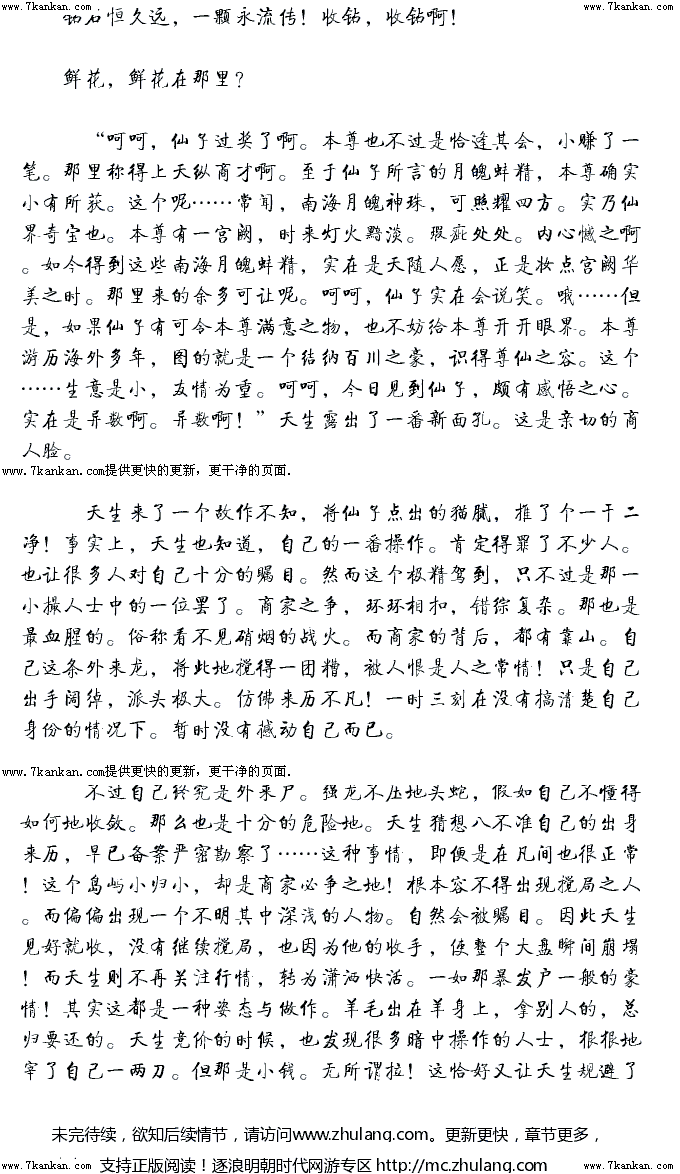 www.7kankan.com www.7kankan.com
钻石恒久远，一颗永流传！收钻，收钻啊！
鲜花，鲜花在那里？
“呵呵，仙子过奖了啊。本尊也不过是恰逢其会，小赚了一
笔。那里称得上天纵商才啊。至于仙子所言的月魄蚌精，本尊确实
小有所获。这个呢……常闻，南海月魄神珠，可照耀四方。实乃仙
界奇宝也。本尊有一宫阙，时来灯火黯淡。瑕疵处处。内心憾之啊
。如今得到这些南海月魄蚌精，实在是天随人愿，正是妆点宫阙华
美之时。那里来的余多可让呢。呵呵，仙子实在会说笑。哦……但
是，如果仙子有可令本尊满意之物，也不妨给本尊开开眼界。本尊
游历海外多年，图的就是一个结纳百川之豪，识得尊仙之容。这个
……生意是小，友情为重。呵呵，今日见到仙子，颇有感悟之心。
实在是异数啊。异数啊！”天生露出了一番新面孔。这是亲切的商
人脸。
www.7kankan.com提供更快的更新，更干净的页面.
天生来了一个故作不知，将仙子点出的猫腻，推了个一干二
净！事实上，天生也知道，自己的一番操作。肯定得罪了不少人。
也让很多人对自己十分的瞩目。然而这个极精驾到，只不过是那一
小撮人士中的一位罢了。商家之争，环环相扣，错综复杂。那也是
最血腥的。俗称看不见硝烟的战火。而商家的背后，都有靠山。自
己这条外来龙，将此地搅得一团糟，被人恨是人之常情！只是自己
出手阔绰，派头极大。仿佛来历不凡！一时三刻在没有搞清楚自己
身份的情况下。暂时没有撼动自己而已。
www.7kankan.com提供更快的更新，更干净的页面.
不过自己终究是外来户。强龙不压地头蛇，假如自己不懂得
如何地收敛。那么也是十分的危险地。天生猜想八不准自己的出身
来历，早已备案严密勘察了……这种事情，即便是在凡间也很正常
！这个岛屿小归小，却是商家必争之地！根本容不得出现搅局之人
。而偏偏出现一个不明其中深浅的人物。自然会被瞩目。因此天生
见好就收，没有继续搅局，也因为他的收手，使整个大盘瞬间崩塌
！而天生则不再关注行情，转为潇洒快活。一如那暴发户一般的豪
情！其实这都是一种姿态与做作。羊毛出在羊身上，拿别人的，总
归要还的。天生竞价的时候，也发现很多暗中操作的人士，狠狠地
宰了自己一两刀。但那是小钱。无所谓拉！这恰好又让天生规避了
未完待续，欲知后续情节，请访问www.zhulang.com。更新更快，章节更多，
www.7kankan.com 支持正版阅读！逐浪明朝时代网游专区 http://mc.zhulang.com/ www.7kankan.com